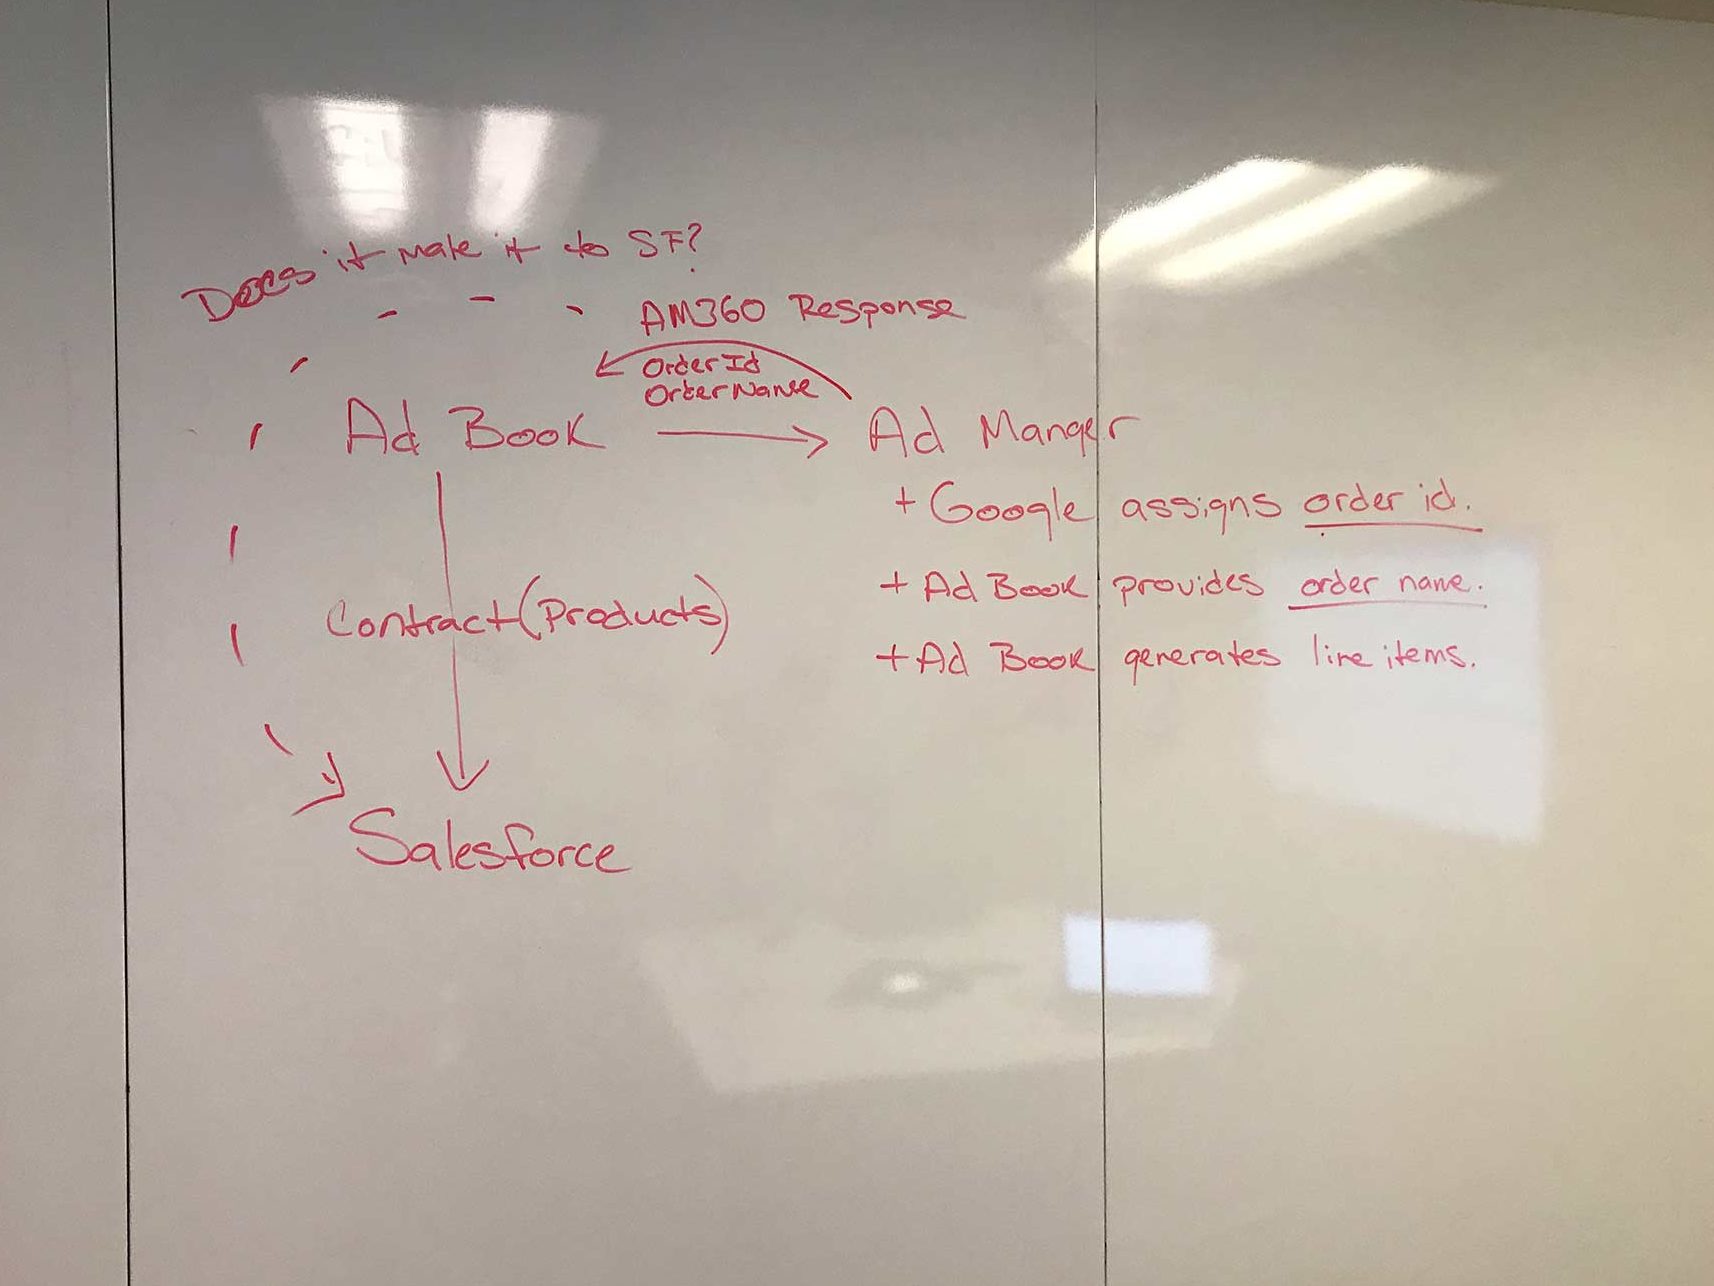 Does it make it to SF?
AM360 Response
OrderId
OrderName
Ad Book
Ad Manger
+ Google assigns order id.
+ Ad Book provides order name.
+ Ad Book generates line items.
Contract (Products)
Salesforce